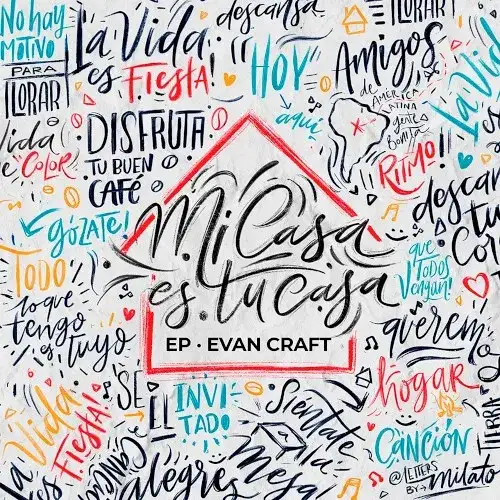 No hay
MOTIVO
PARA
LLORAR
La Vida
es FIESTA!
descansa
HOY
aquí
Amigos
de
AMERICA
LATINA
gente
Bonita
LLORAR!
La Vida
Vida
e Color
DISFRUTA
TU BUEN
CAFÉ
RITMO!!
descansa
tu
Cor
GÓZATE!
TODO
lo que
tengo
es tuyo
Mi Casa
es tu casa
EP · EVAN CRAFT
que
TODOS
Vengan!
queremo
hogar
La Vida
FIESTA!
SE
EL
INVI
TADO
Siéntate
a la
Mesa
alegres
CANCIÓN
LLORAR
@LETTERS
BY Milato